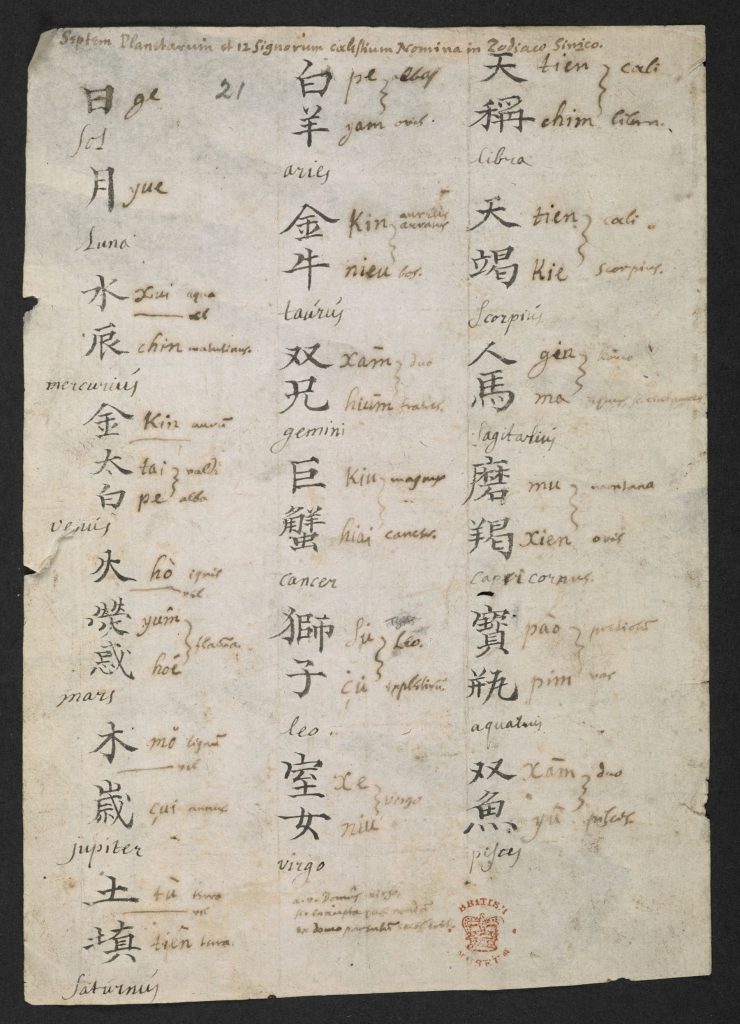 Septem Planetarum et 12 Signorum cælestium Nomina in Zodiaco Sinico.
21
日 ge
Sol
月 yue
Luna
水 xui aqua
vel
辰 chin matutinus.
mercuriùs
金 Kin aurũ
太 tai valdè
白 pe alba
venùs
火 hò ignis
vel
熒 yum̂ flam̃a.
惑 hoĕ
mars
木 mŏ lignũ
vel
歲 çui annus
jupiter
土 tù terra
vel
填 tiên terra.
saturnùs
白 pe albus
羊 yam ovis.
aries
金 Kin aureus auratus
牛 nieu bos.
taùrùs
双 xãm duo
兄 hiũm fratres.
gemini
巨 Kiu magnus
蟹 hiai cancer.
cancer
獅 Leo.
子 çù expletivũ.
leo.
室 xe virgo
女 niu
virgo
domo
天 tien cæli
稱 chim libra.
libra
天 tien cæli
竭 Kie scorpius.
Scorpiùs
人 gin homo
馬 ma equus
Sagitariùs
磨 mu montana
羯 xien ovis
capricornus.
寶 pào pretiosũ
瓶 pim vas
aquariùs
双 xãm duo
魚 yũ pisces.
pisces
BRITISH
MUSEUM